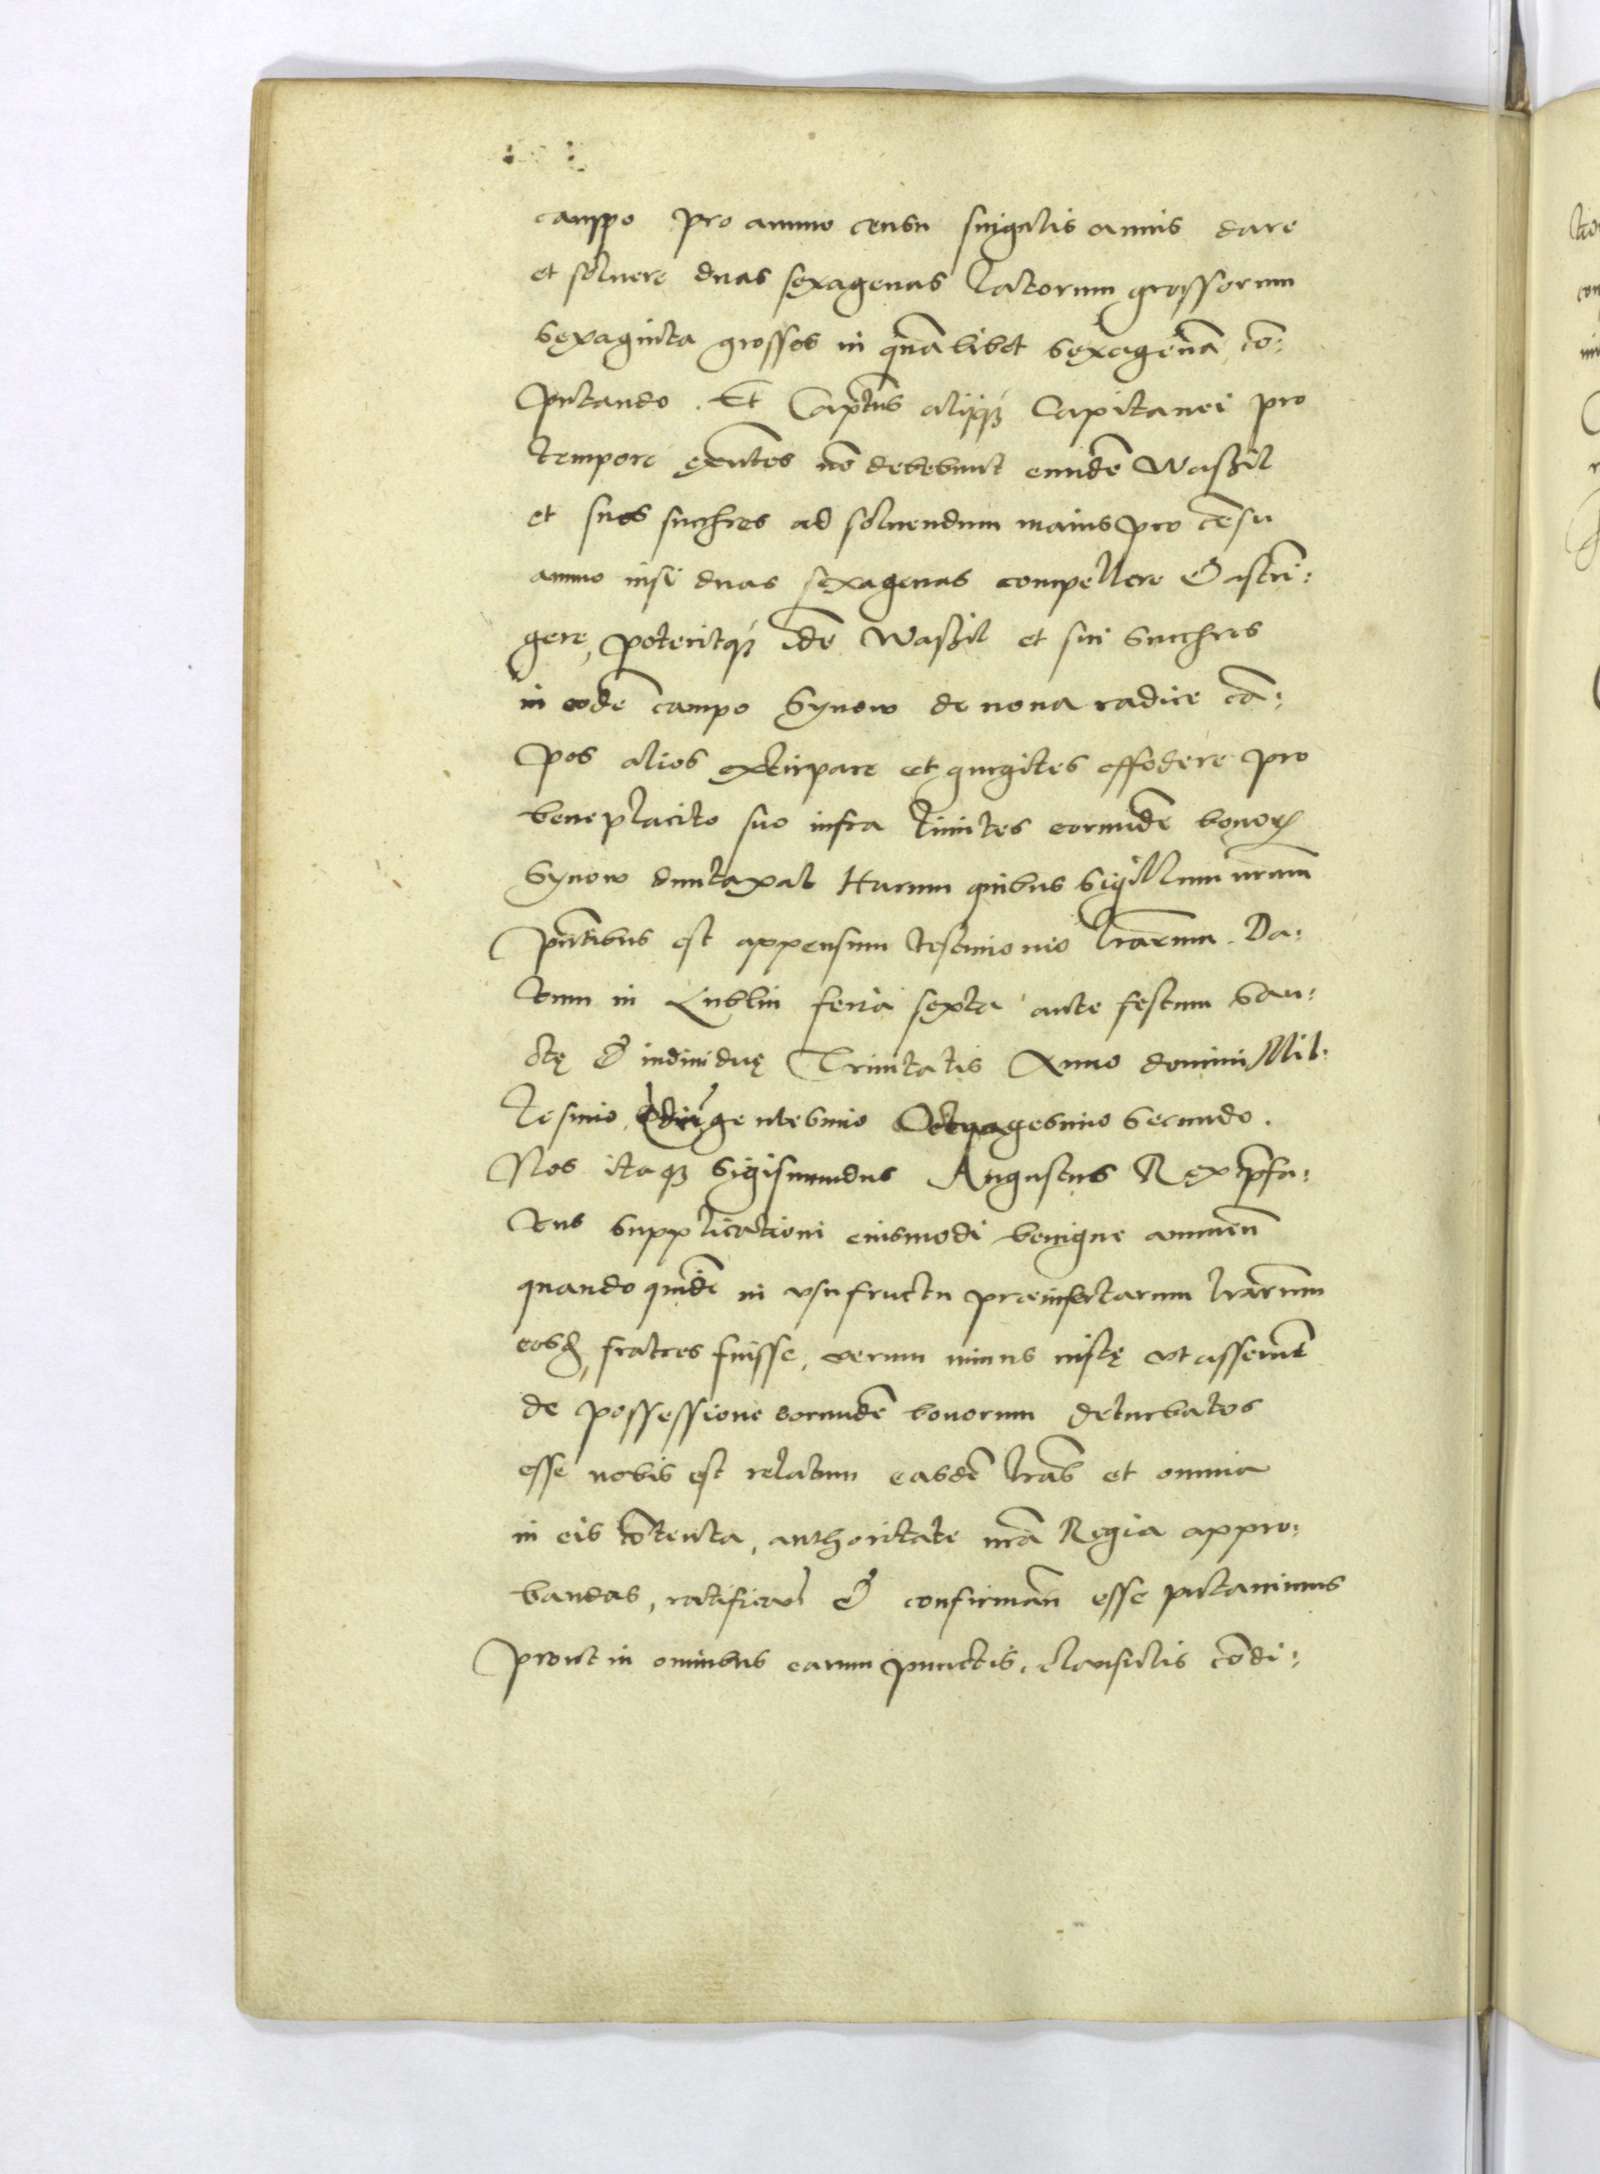 campo pro annuo censu singulis annis dare
et soluere duas sexagenas latorum grossorum
sexaginta grossos in quālibet sexagenā cō:
putando. Et Captus alijq₃ Capitanei pro
tempore exn̄tes nō debebunt eundē Waßil
et suos succhres ad soluendum maius pro cēsu
annuo nisi duas sexagenas compellere & astrī:
gere, poteritq₃ idē Waßil et sui succhres
in eodē campo Synow de noua radice cā:
pos alios extirpare et gurgites effodere pro
beneplacito suo infra limites eorundē bonorꝝ
Synow duntaxat Harum quibus sigillum nr̄um
pn̄tibus est appensum testimonio lrārum. Da:
tum in Lublin feria sexta ante festum San:
ctę & indiuiduę Trinitatis Anno domini Mil:
lesimo, gentesimo Octuagesimo secundo.
Nos itaq₃ Sigismundus Augustus Rex p̄fa:
tus supplicationi eiusmodi benigne annuen̄
quando quidē in vsufructu præinsertarum lrārum
eosd̄, fratres fuisse, verum minus iustę vt asserunt̄
de possessione eorundē bonorum deturbatos
esse nobis est relatum easdē lrās et omnia
in eis cōtenta, authoritate nr̄a Regia appro:
bandas, ratifican̄ & confirman̄ esse putauimus
prout in omnibus earum punctis, clausulis cōdi: